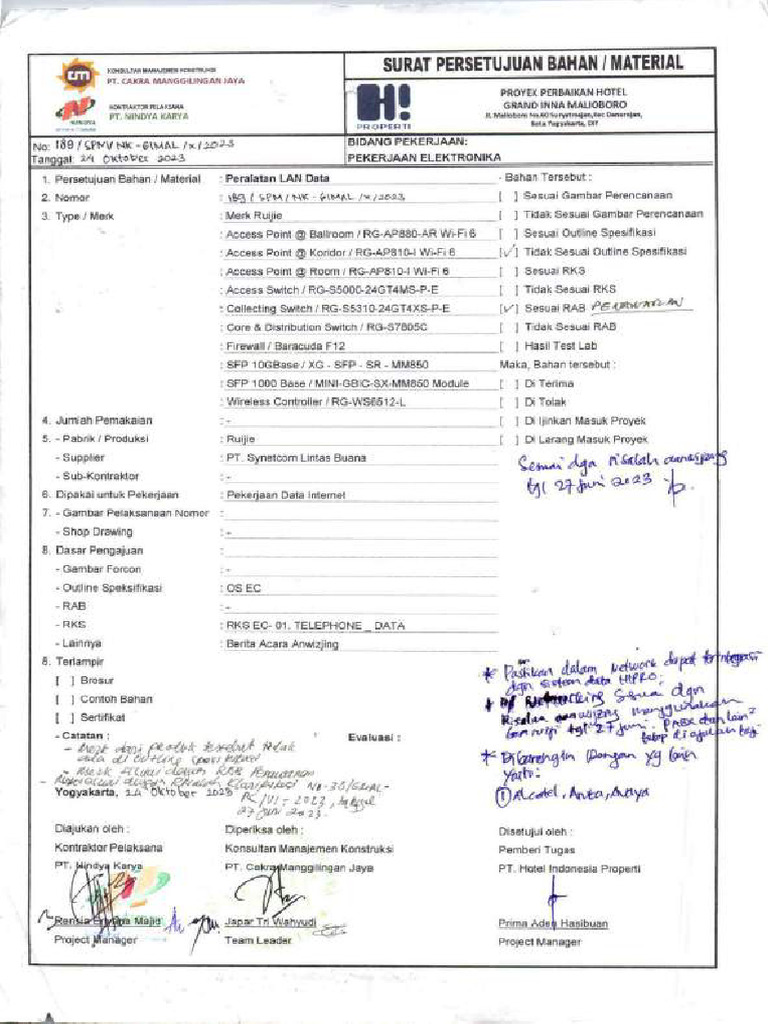 KONSULTAN MANAJEMEN KONSTRUKSI
PT. CAKRA MANGGILINGAN JAYA
KONTRAKTOR PELAKSANA
PT. NINDYA KARYA
SURAT PERSETUJUAN BAHAN / MATERIAL
H!
PROPERTI
PROYEK PERBAIKAN HOTEL
GRAND INNA MALIOBORO
Jl. Malioboro No.60 Suryatmajan, Kec Danurejan,
Kota Yogyakarta, DIY
No: 189/SPM/NK-GIMAL/X/2023
Tanggal 24 Oktober 2023
BIDANG PEKERJAAN:
PEKERJAAN ELEKTRONIKA
1. Persetujuan Bahan / Material : Peralatan LAN Data
2. Nomor : 189/SPM/NK-GIMAL/X/2023
3. Type / Merk : Merk Ruijie
: Access Point @ Ballroom / RG-AP880-AR Wi-Fi 6
: Access Point @ Koridor / RG-AP810-I Wi-Fi 6
: Access Point @ Room / RG-AP810-I Wi-Fi 6
: Access Switch / RG-S5000-24GT4MS-P-E
: Collecting Switch / RG-S5310-24GT4XS-P-E
: Core & Distribution Switch / RG-S7805C
: Firewall / Baracuda F12
: SFP 10GBase / XG - SFP - SR - MM850
: SFP 1000 Base / MINI-GBIC-SX-MM850 Module
: Wireless Controller / RG-WS6512-L
4. Jumlah Pemakaian : -
5. - Pabrik / Produksi : Ruijie
- Supplier : PT. Synetcom Lintas Buana
- Sub-Kontraktor : -
6. Dipakai untuk Pekerjaan : Pekerjaan Data Internet
7. - Gambar Pelaksanaan Nomor :
- Shop Drawing : -
8. Dasar Pengajuan :
- Gambar Forcon : -
- Outline Speksifikasi : OS EC
- RAB : -
- RKS : RKS EC- 01. TELEPHONE _ DATA
- Lainnya : Berita Acara Anwizjing
8. Terlampir
[ ] Brosur
[ ] Contoh Bahan
[ ] Sertifikat
- Bahan Tersebut :
[ ] Sesuai Gambar Perencanaan
[ ] Tidak Sesuai Gambar Perencanaan
[ ] Sesuai Outline Spesifikasi
[✓] Tidak Sesuai Outline Spesifikasi
[ ] Sesuai RKS
[ ] Tidak Sesuai RKS
[✓] Sesuai RAB PENAWARAN
[ ] Tidak Sesuai RAB
[ ] Hasil Test Lab
Maka, Bahan tersebut :
[ ] Di Terima
[ ] Di Tolak
[ ] Di Ijinkan Masuk Proyek
[ ] Di Larang Masuk Proyek
Sesuai dgn risalah
tgl 27 Juni 2023
* Pastikan dalam Network dapat terintegrasi
dgn sistem data
Networking sesuai dgn
menggunakan
tgl 27 Juni. PABX dan lain2
tetap diajukan
* Dibarengin dengan yg lain
yaitu:
① Alcatel, Aruba, Avaya
- Catatan :
- Merk dari produk tersebut tidak
ada di outline spesifikasi
- Merk sesuai dalam RAB Penawaran
2023,
27 Juni 2023.
Evaluasi :
Yogyakarta, 24 Oktober 2023
Diajukan oleh :
Kontraktor Pelaksana
PT. Nindya Karya
Project Manager
Diperiksa oleh :
Konsultan Manajemen Konstruksi
PT. Cakra Manggilingan Jaya
Japar Tri Wahyudi
Team Leader
Disetujui oleh :
Pemberi Tugas
PT. Hotel Indonesia Properti
Prima Aden Hasibuan
Project Manager